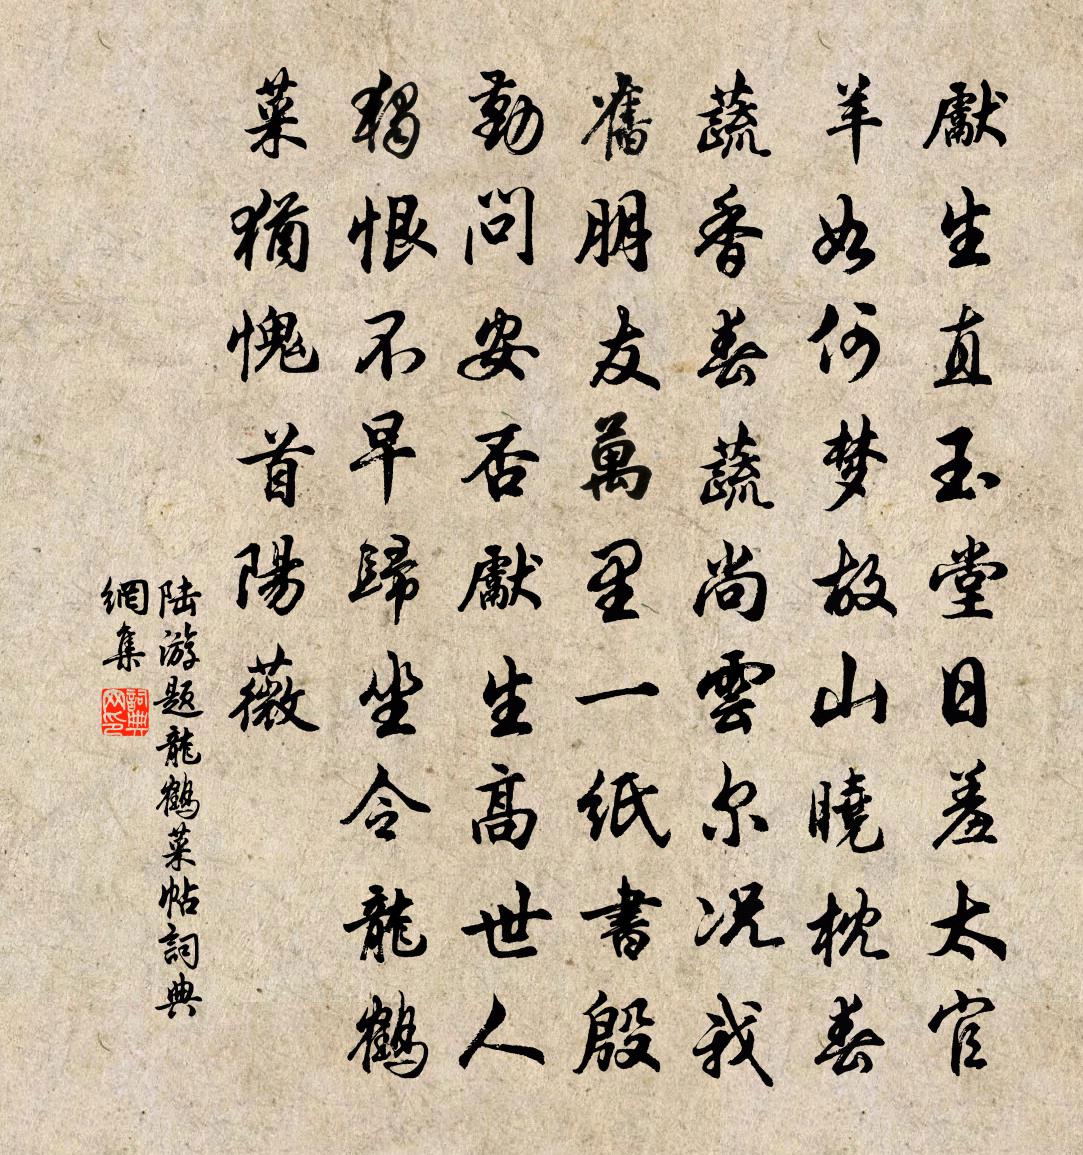 獻生直玉堂日羞太官
羊如何梦故山曉枕春
蔬香春蔬尚雲尔况我
舊朋友萬里一紙書殷
勤問安否獻生高世人
獨恨不早歸坐令龍鶴
菜猶愧首陽薇
陆游题龍鶴菜帖詞典
網集
詞典网印